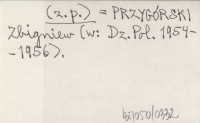 (z.p.) = PRZYGÓRSKI
Zbigniew (w: Dz. Pol. 1954-
-1956).
bn050/0332